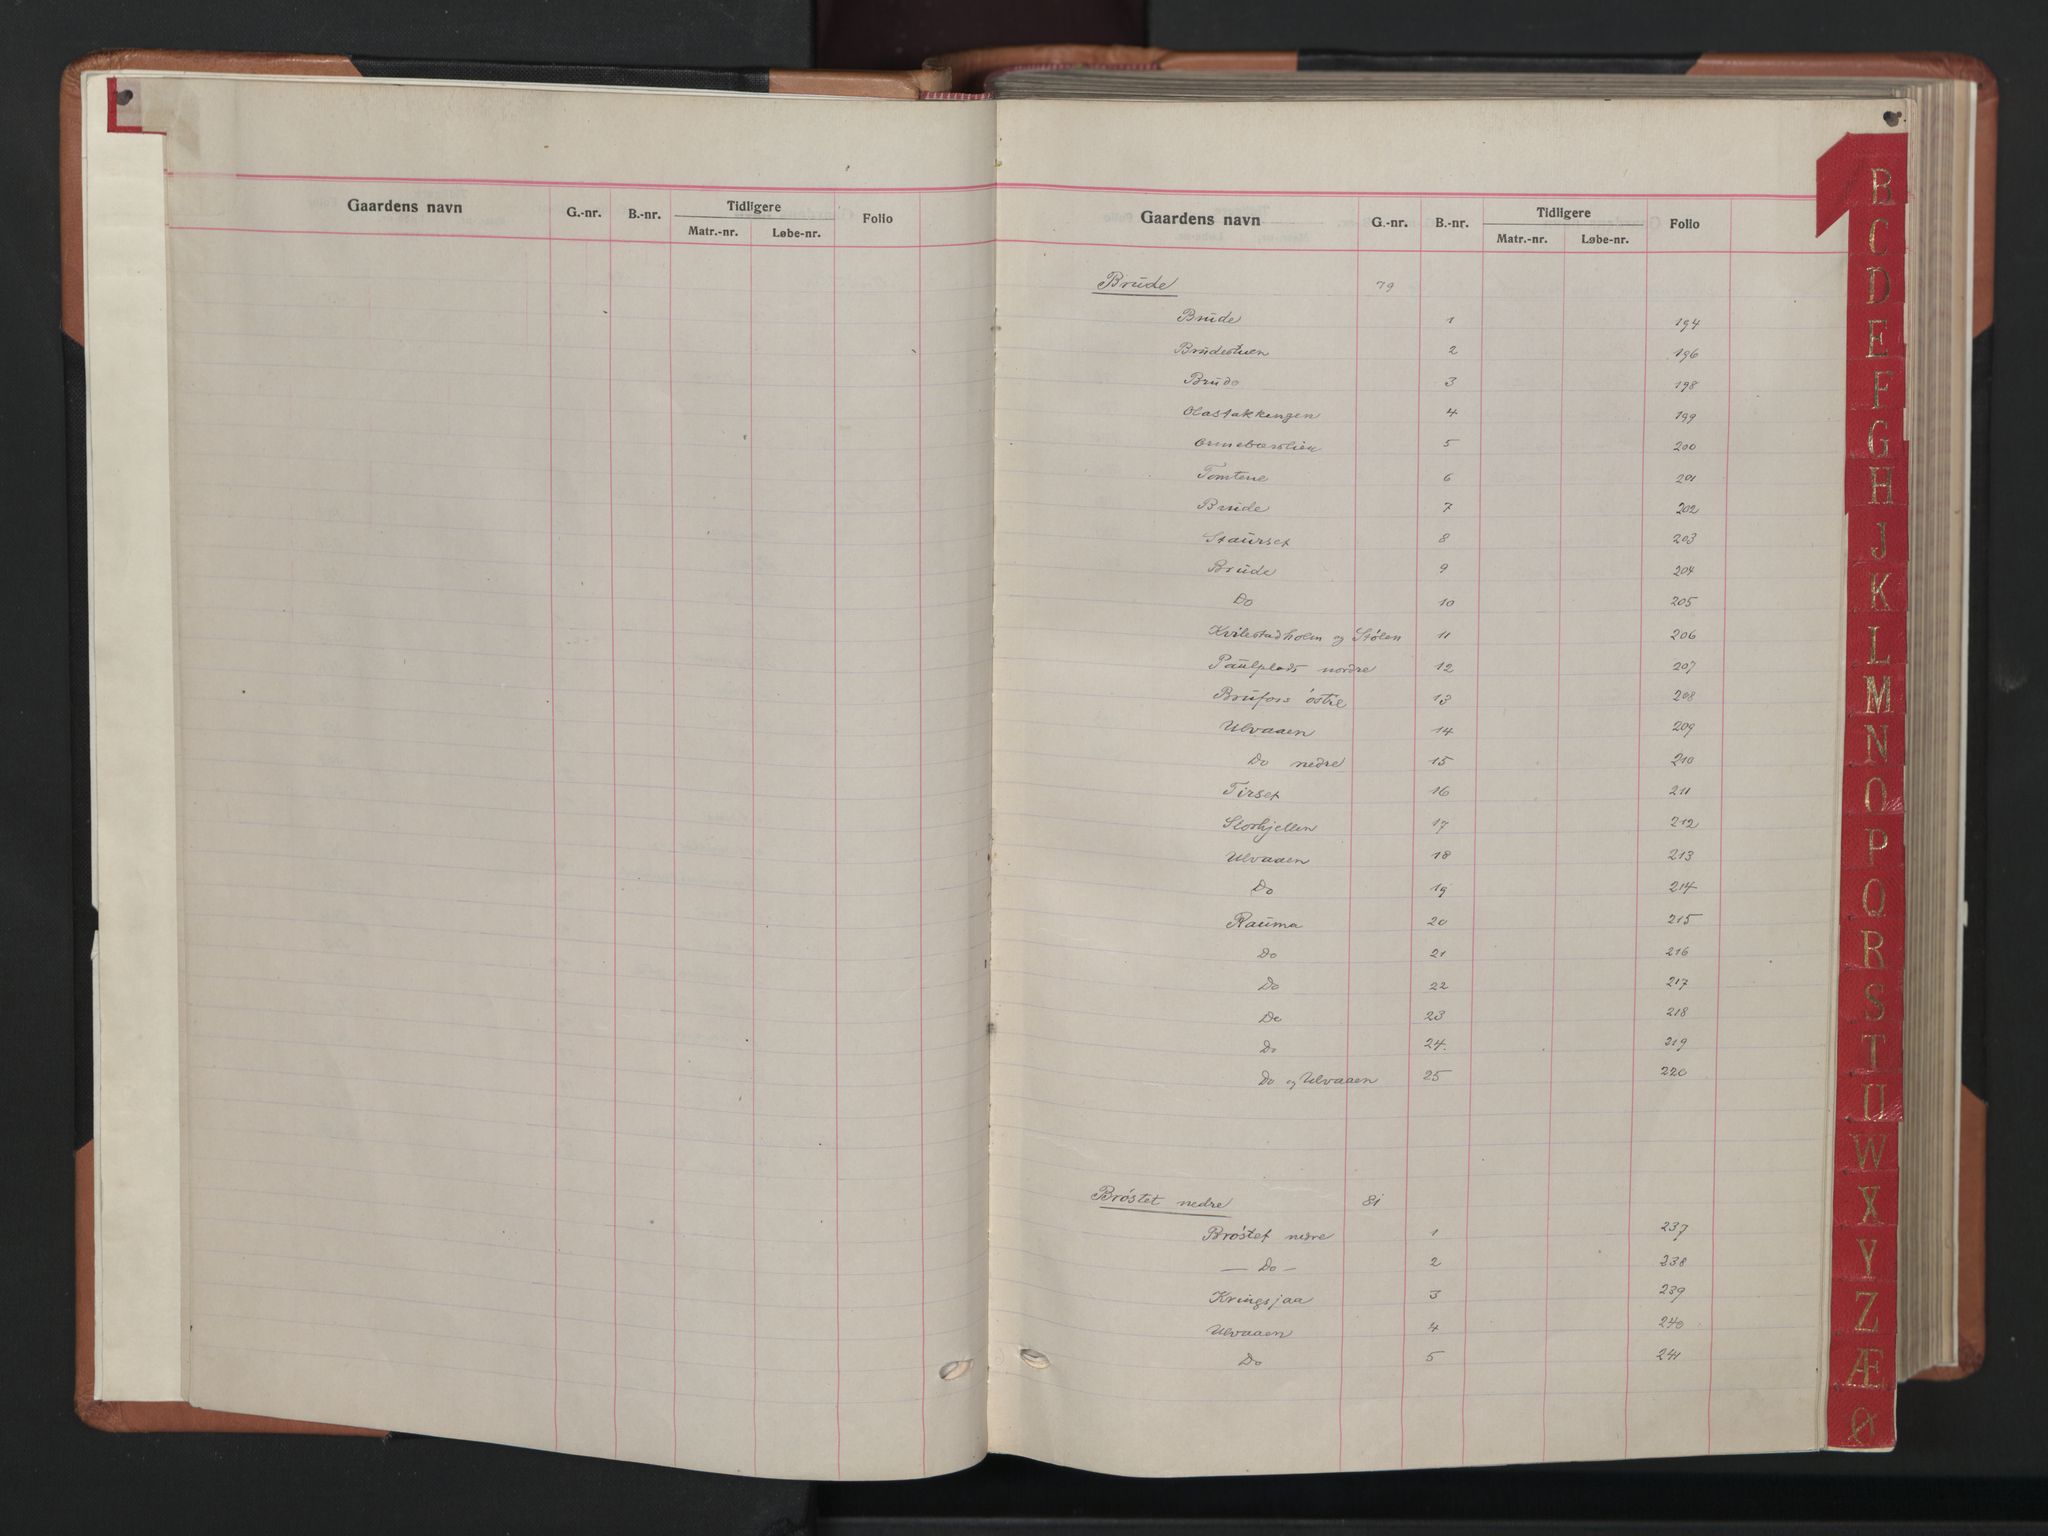 Gaardens navn G.-nr. B.-nr. Tidligere Folio
Matr.-nr. Løbe-nr.
Gaardens navn G.-nr. B.-nr. Tidligere Folio
Matr.-nr. Løbe-nr.
Brude 79
Brude 1 194
Brudestuen 2 196
Brude 3 198
Olastakkingen 4 199
5 200
Tomtene 6 201
Brude 7 202
Staurset 8 203
Brude 9 204
Do 10 205
Kvilestadholen og Stølen 11 206
Paulplads nordre 12 207
Brufoss østre 13 208
Ulvaaen 14 209
Do nedre 15 210
Tirset 16 211
Storhjellen 17 212
Ulvaaen 18 213
Do 19 214
Rauma 20 215
Do 21 216
Do 22 217
Do 23 218
Do 24. 219
Do og Ulvaaen 25 220
Brøstet nedre 81
Brøstet nedre 1 237
— Do — 2 238
Kringsjaa 3 239
Ulvaaen 4 240
Do 5 241
B
C
D
E
F
G
H
J
K
L
M
N
O
P
Q
R
S
T
U
W
X
Y
Z
Æ
Ø